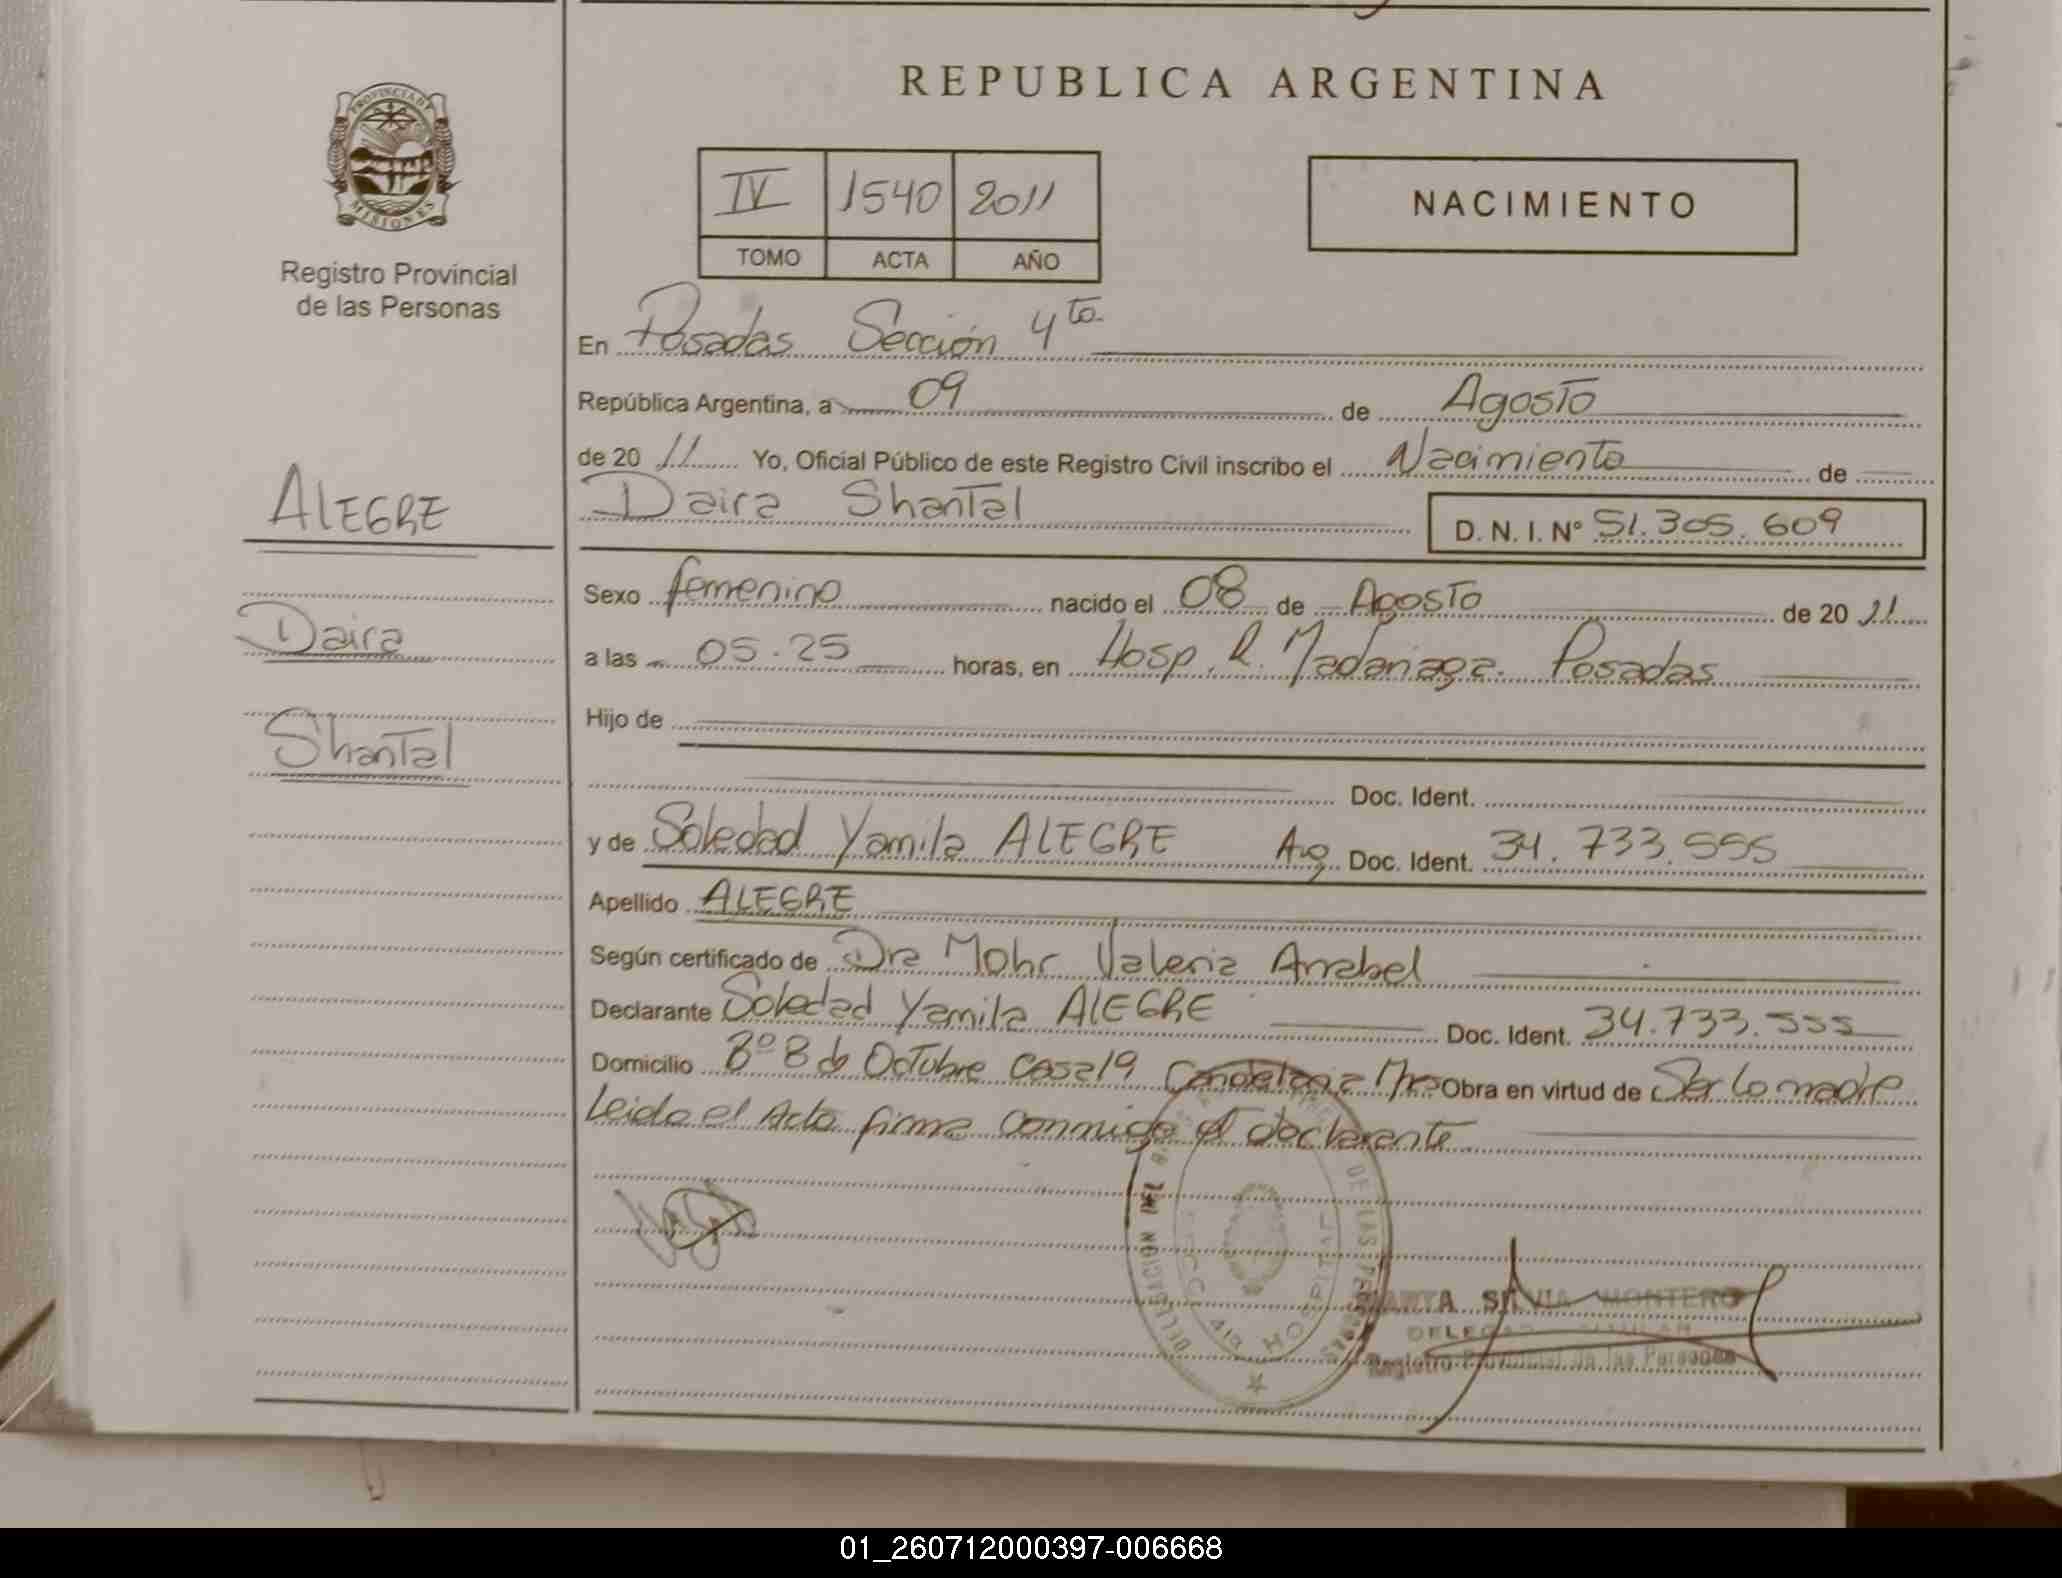 REPUBLICA ARGENTINA
PROVINCIA DE
MISIONES
Registro Provincial
de las Personas
IV 1540 2011
TOMO ACTA AÑO
NACIMIENTO
En Posadas Sección 4ta
República Argentina, a 09 de Agosto
de 2011 Yo, Oficial Público de este Registro Civil inscribo el Nacimiento de
Daira Shantal
D. N. I. Nº 51.305.609
ALEGRE
Daira
Shantal
Sexo femenino nacido el 08 de Agosto de 2011
a las 05.25 horas, en Hosp. R. Madariaga. Posadas
Hijo de
Doc. Ident.
y de Soledad Yamila ALEGRE Arg Doc. Ident. 34.733.555
Apellido ALEGRE
Según certificado de Dra Mohr Valeria Anabel
Declarante Soledad Yamila ALEGRE Doc. Ident. 34.733.555
Domicilio Bº 8 de Octubre Casa 19 Candelaria Mnes Obra en virtud de Ser la madre
Leida el Acta firma Conmigo el declarante
DELEGACION DEL DE LAS PERSONAS
SECC 4ta HOSPITAL
MARTA SILVIA MONTERO
DELEGADA TITULAR
Registro Provincial de las Personas
01_260712000397-006668